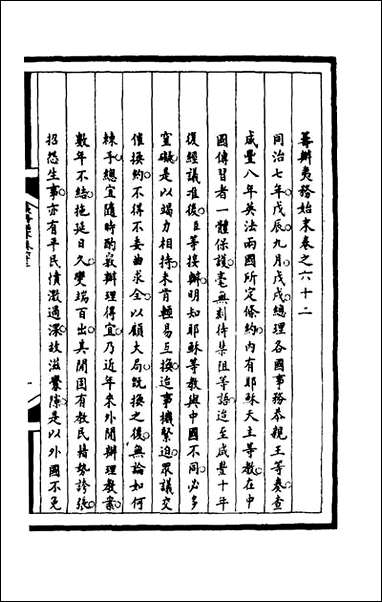 籌辦夷務始末卷之六十二
同治七年戊辰九月戊戌總理各國事務恭親王等奏查
咸豐八年英法兩國所定條約內有耶穌天主等教在中
國傳習者一體保護毫無刻待禁阻等語迨至咸豐十年
復經議准後臣等接辦明知耶穌等教與中國不同必多
窒礙是以竭力相持未肯輕易互換迨事機緊迫眾議交
催換約不得不委曲求全以顧大局既換之後無論如何
棘手總宜隨時酌覈辦理得宜乃近年來外間辦理教案
數年不結拖延日久變端百出其閒固有教民藉勢誇張
招怨生事亦有平民憤激過深故滋釁隙是以外國不免